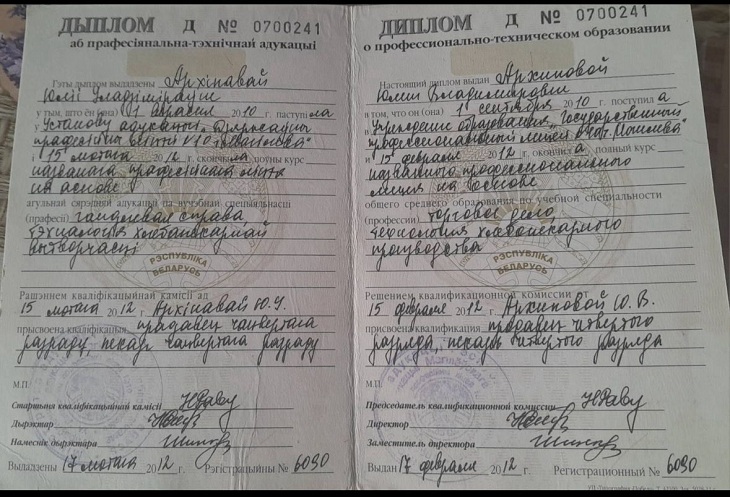 ДЫПЛОМ Д № 0700241
аб прафесіянальна-тэхнічнай адукацыі
Гэты дыплом выдадзены Архінавай
Юліі Уладзіміраўне
у тым, што ён (она) 01 верасня 2010 г. паступіла
у Установу адукацыі „Дзяржаўны
прафесійны ліцэй №10
і 15 лютага 2012 г. скончыла поўны курс
названага прафесійнага ліцэя
на аснове
агульнай сярэдняй адукацыі па вучэбнай спецыяльнасці
(прафесіі) гандлёвая справа
тэхналогія хлебапякарнай
вытворчасці
РЭСПУБЛІКА
БЕЛАРУСЬ
Рашэннем кваліфікацыйнай камісіі ад
15 лютага 2012 г. Архінавай Ю.У.
прысвоена кваліфікацыя прадавец чацвёртага
разраду, пекар чацвёртага разраду
М.П.
Старшыня кваліфікацыйнай камісіі
Дырэктар
Намеснік дырэктара
Выдадзены 17 лютага 2012 г. Рэгістрацыйны № 6090
ДИПЛОМ Д № 0700241
о профессионально-техническом образовании
Настоящий диплом выдан Архиповой
Юлии Владимировне
в том, что он (она) 1 сентября 2010 г. поступила
в Учреждение образования „Государственный
профессиональный лицей
и 15 февраля 2012 г. окончила полный курс
названного профессионального
лицея на основе
общего среднего образования по учебной специальности
(профессии) торговое дело
технология хлебопекарного
производства
РЭСПУБЛІКА
БЕЛАРУСЬ
Решением квалификационной комиссии от
15 февраля 2012 г. Архиповой Ю.В.
присвоена квалификация продавец четвертого
разряда, пекарь четвертого разряда
М.П.
Председатель квалификационной комиссии
Директор
Заместитель директора
Выдан 17 февраля 2012 г. Регистрационный № 6090